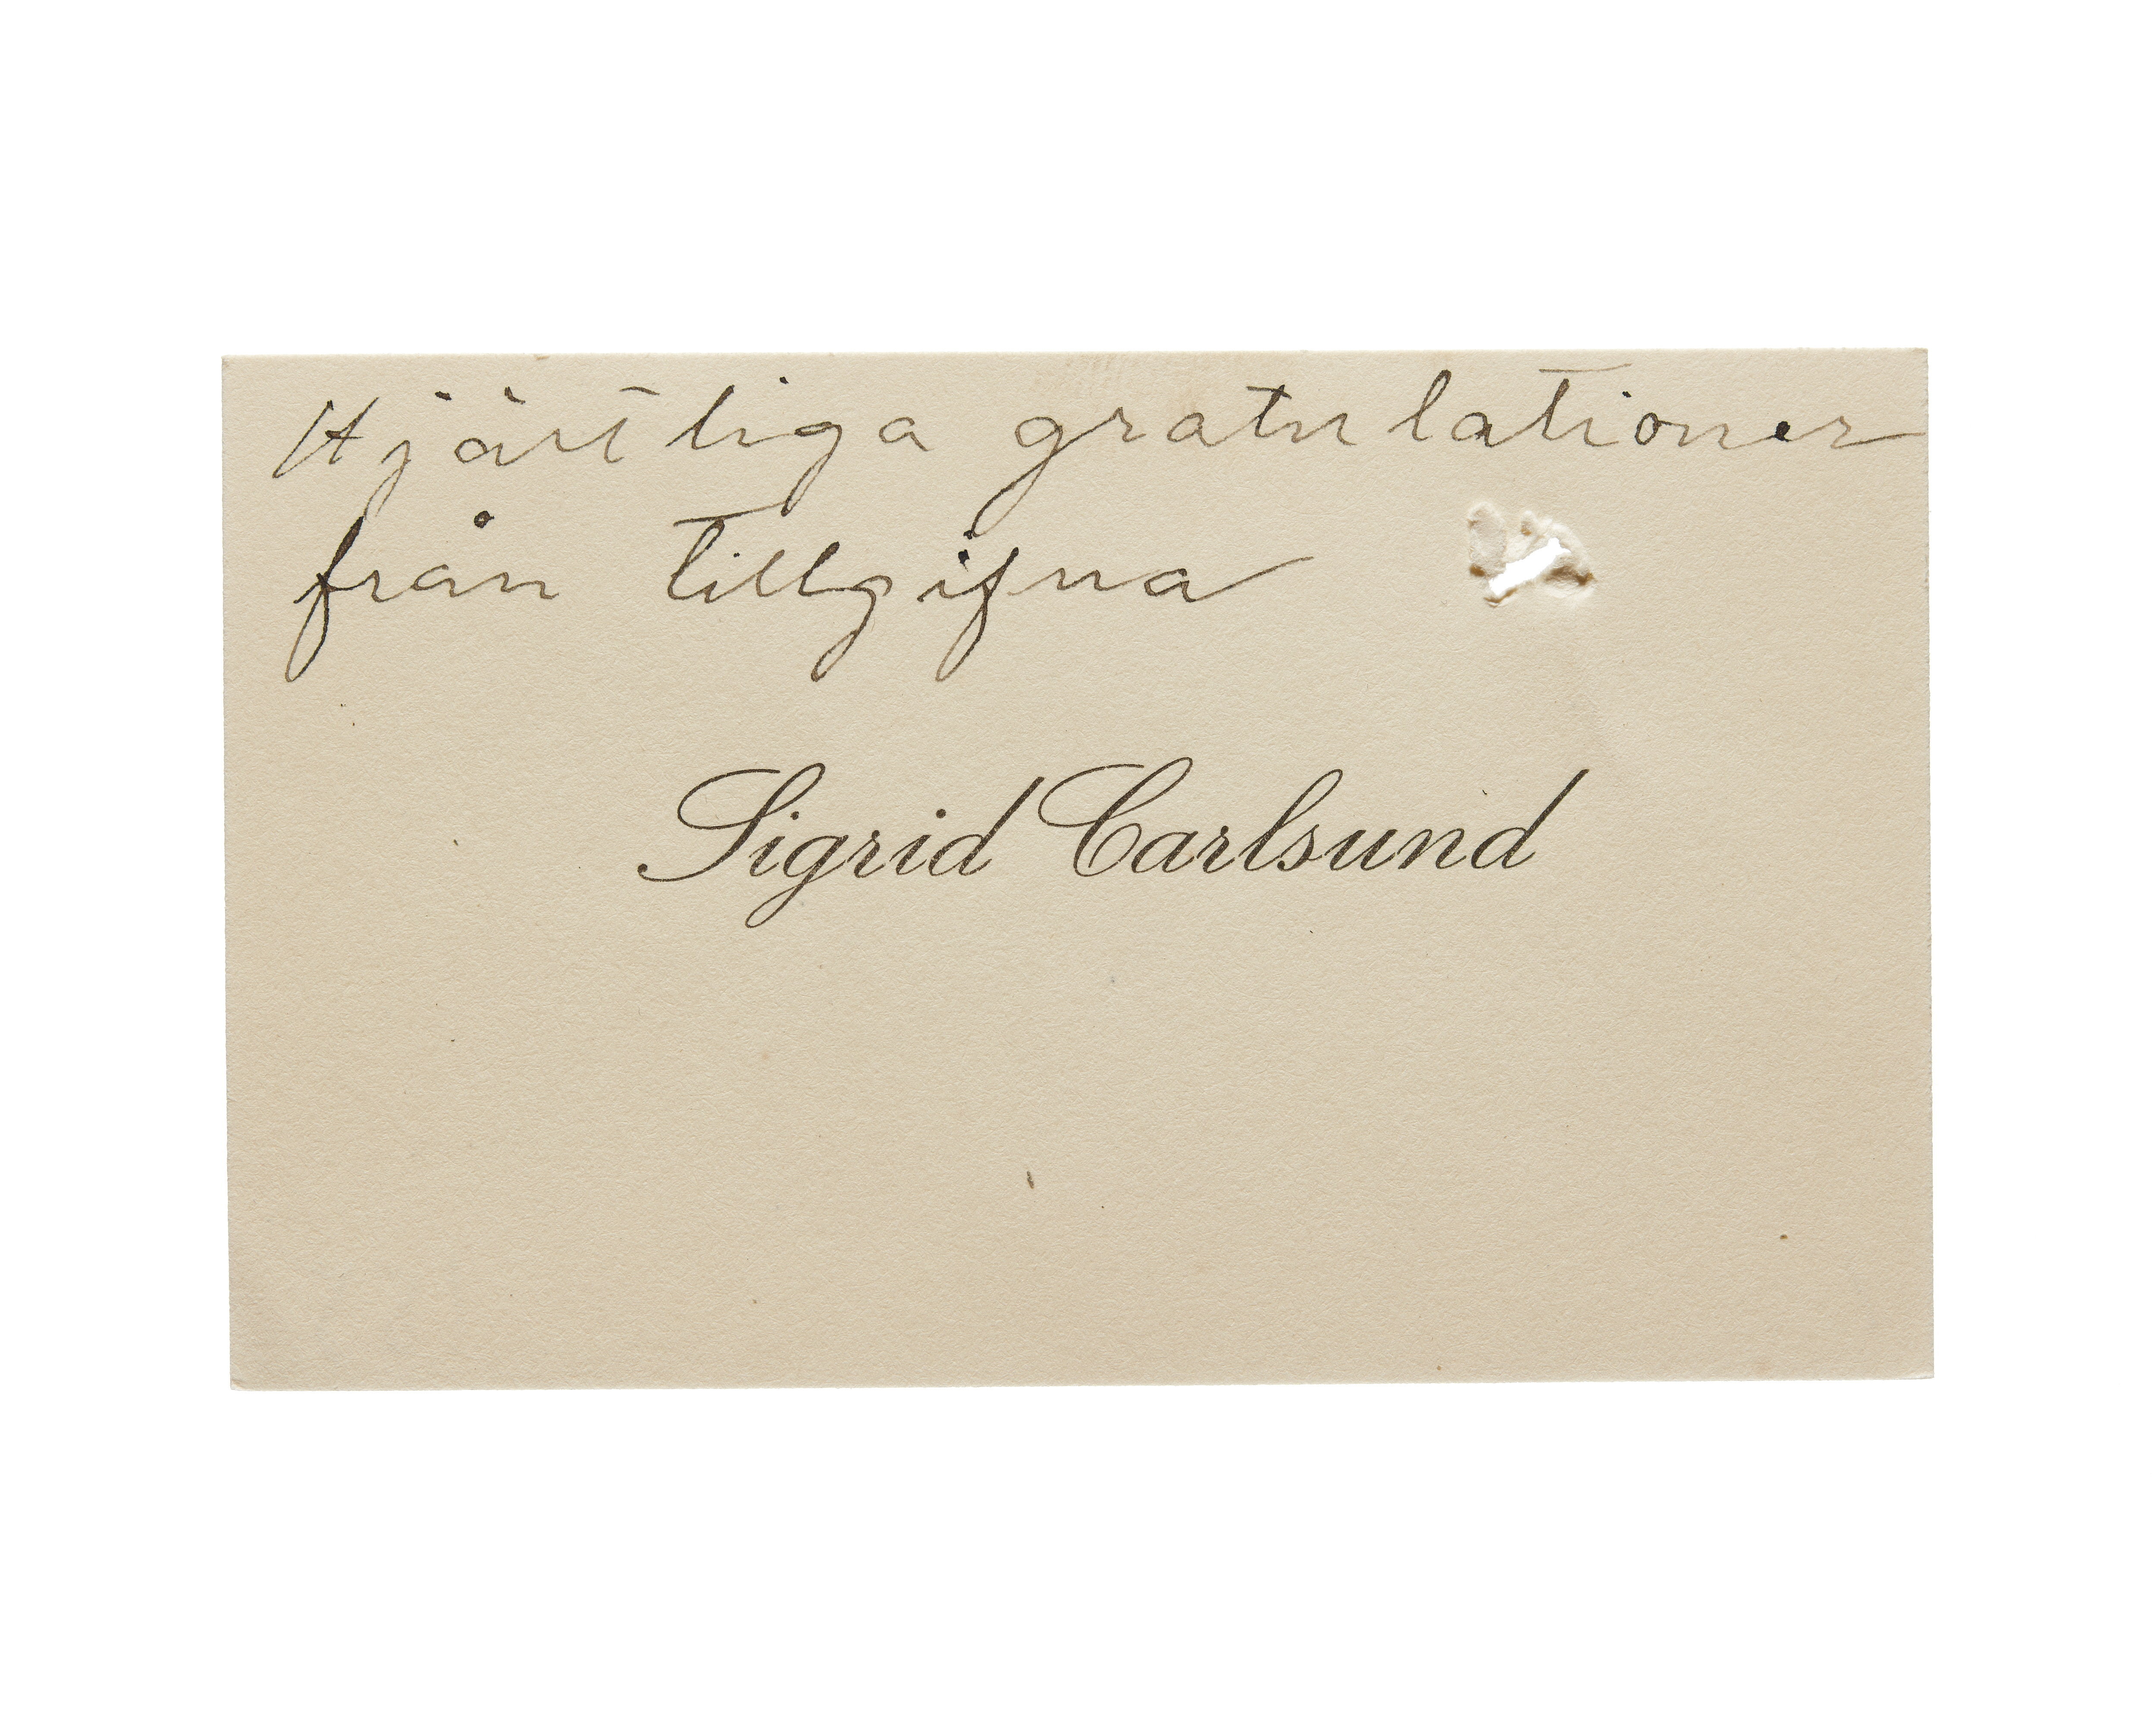 Hjärtliga gratulationer
från tillgifna
Sigrid Carlsund